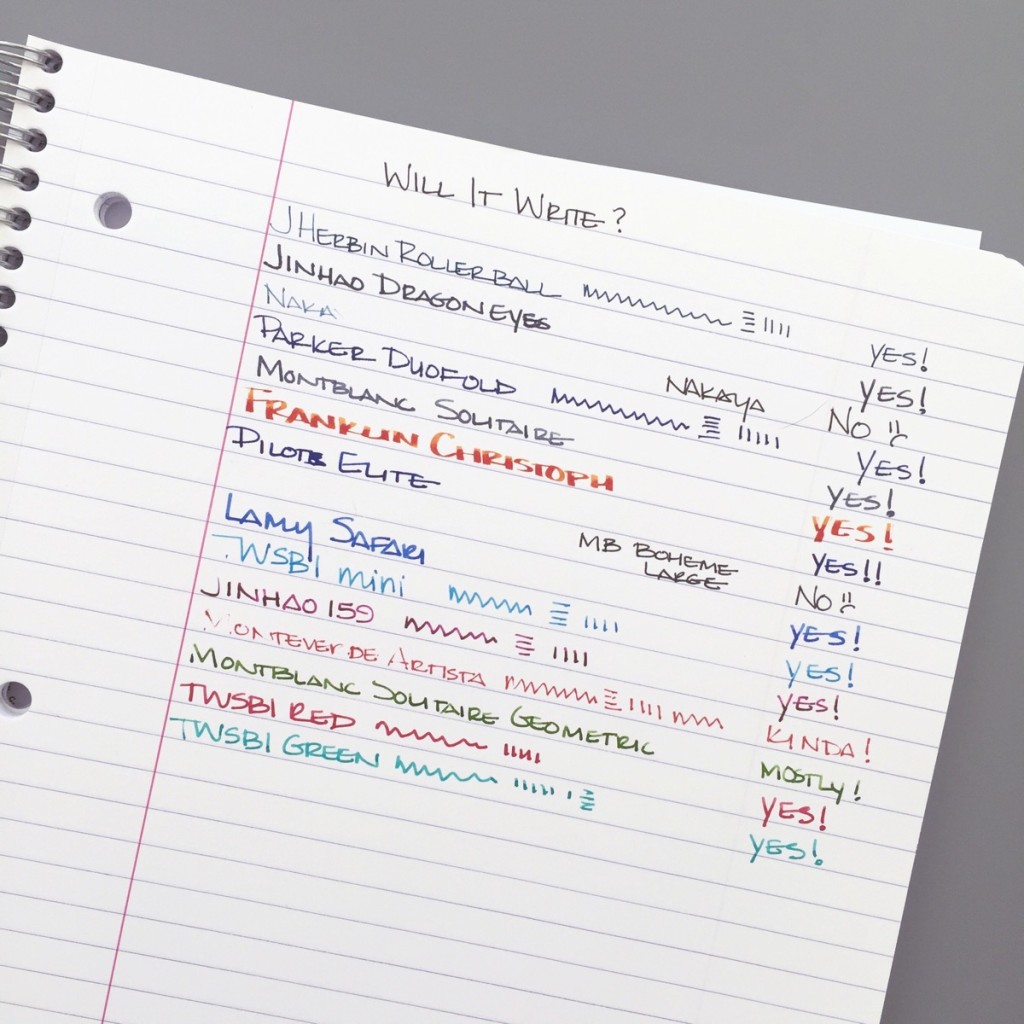 WILL IT WRITE?
J HERBIN ROLLERBALL YES!
JINHAO DRAGON EYES YES!
NAKA NAKAYA NO
PARKER DUOFOLD YES!
MONTBLANC SOLITAIRE YES!
FRANKLIN CHRISTOPH YES!
PILOT ELITE YES!!
MB BOHEME NO
LARGE
LAMY SAFARI YES!
TWSBI mini YES!
JINHAO 159 YES!
MONTEVERDE ARTISTA KINDA!
MONTBLANC SOLITAIRE GEOMETRIC MOSTLY!
TWSBI RED YES!
TWSBI GREEN YES!